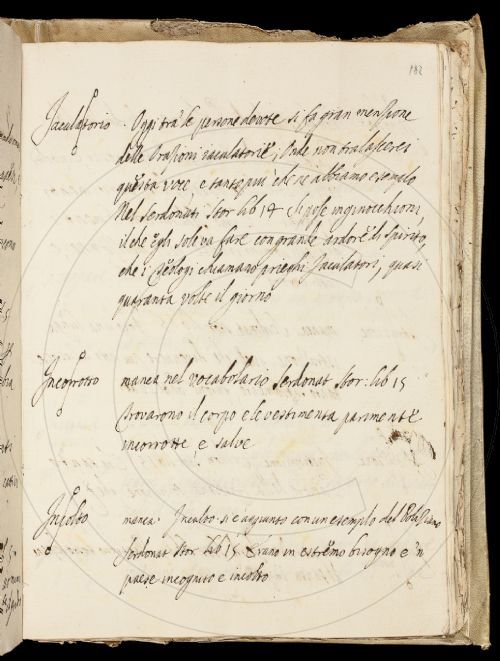 182
Iaculatorio. Oggi tra le persone devote si fa gran menzione
delle Orazioni iaculatorie, Onde non tralascerei
questa voce e tanto più che ne abbiamo esemplo
Nel Serdonati Stor lib 14 si pose inginocchioni,
il che egli soleva fare con grande ardore di spirito,
che i Teologi chiamano prieghi Iaculatori, quasi
quaranta volte il giorno
Incorrotto manca nel vocabolario Serdonat Stor: lib 15
Trovarono il corpo e le vestimenta parimente
incorrotte, e salve
Incolto manca. Inculto si è aggiunto con un esemplo del
Serdonat Stor lib 15 Erano in estremo bisogno e 'n
paese incognito e incolto